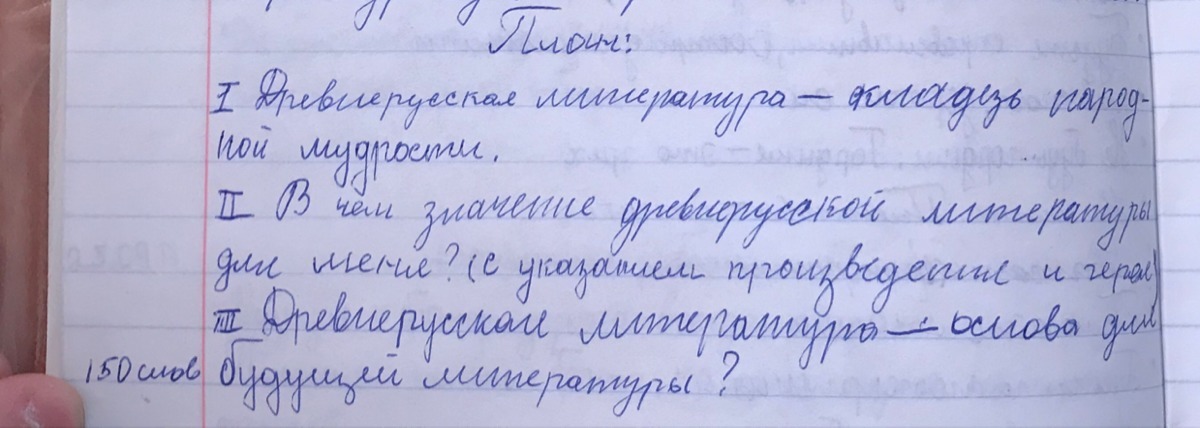 План:
I Древнерусская литература — кладезь народ-
ной мудрости.
II В чем значение древнерусской литературы
для меня? (с указанием произведения и героя)
III Древнерусская литература — основа для
150 слов будущей литературы?